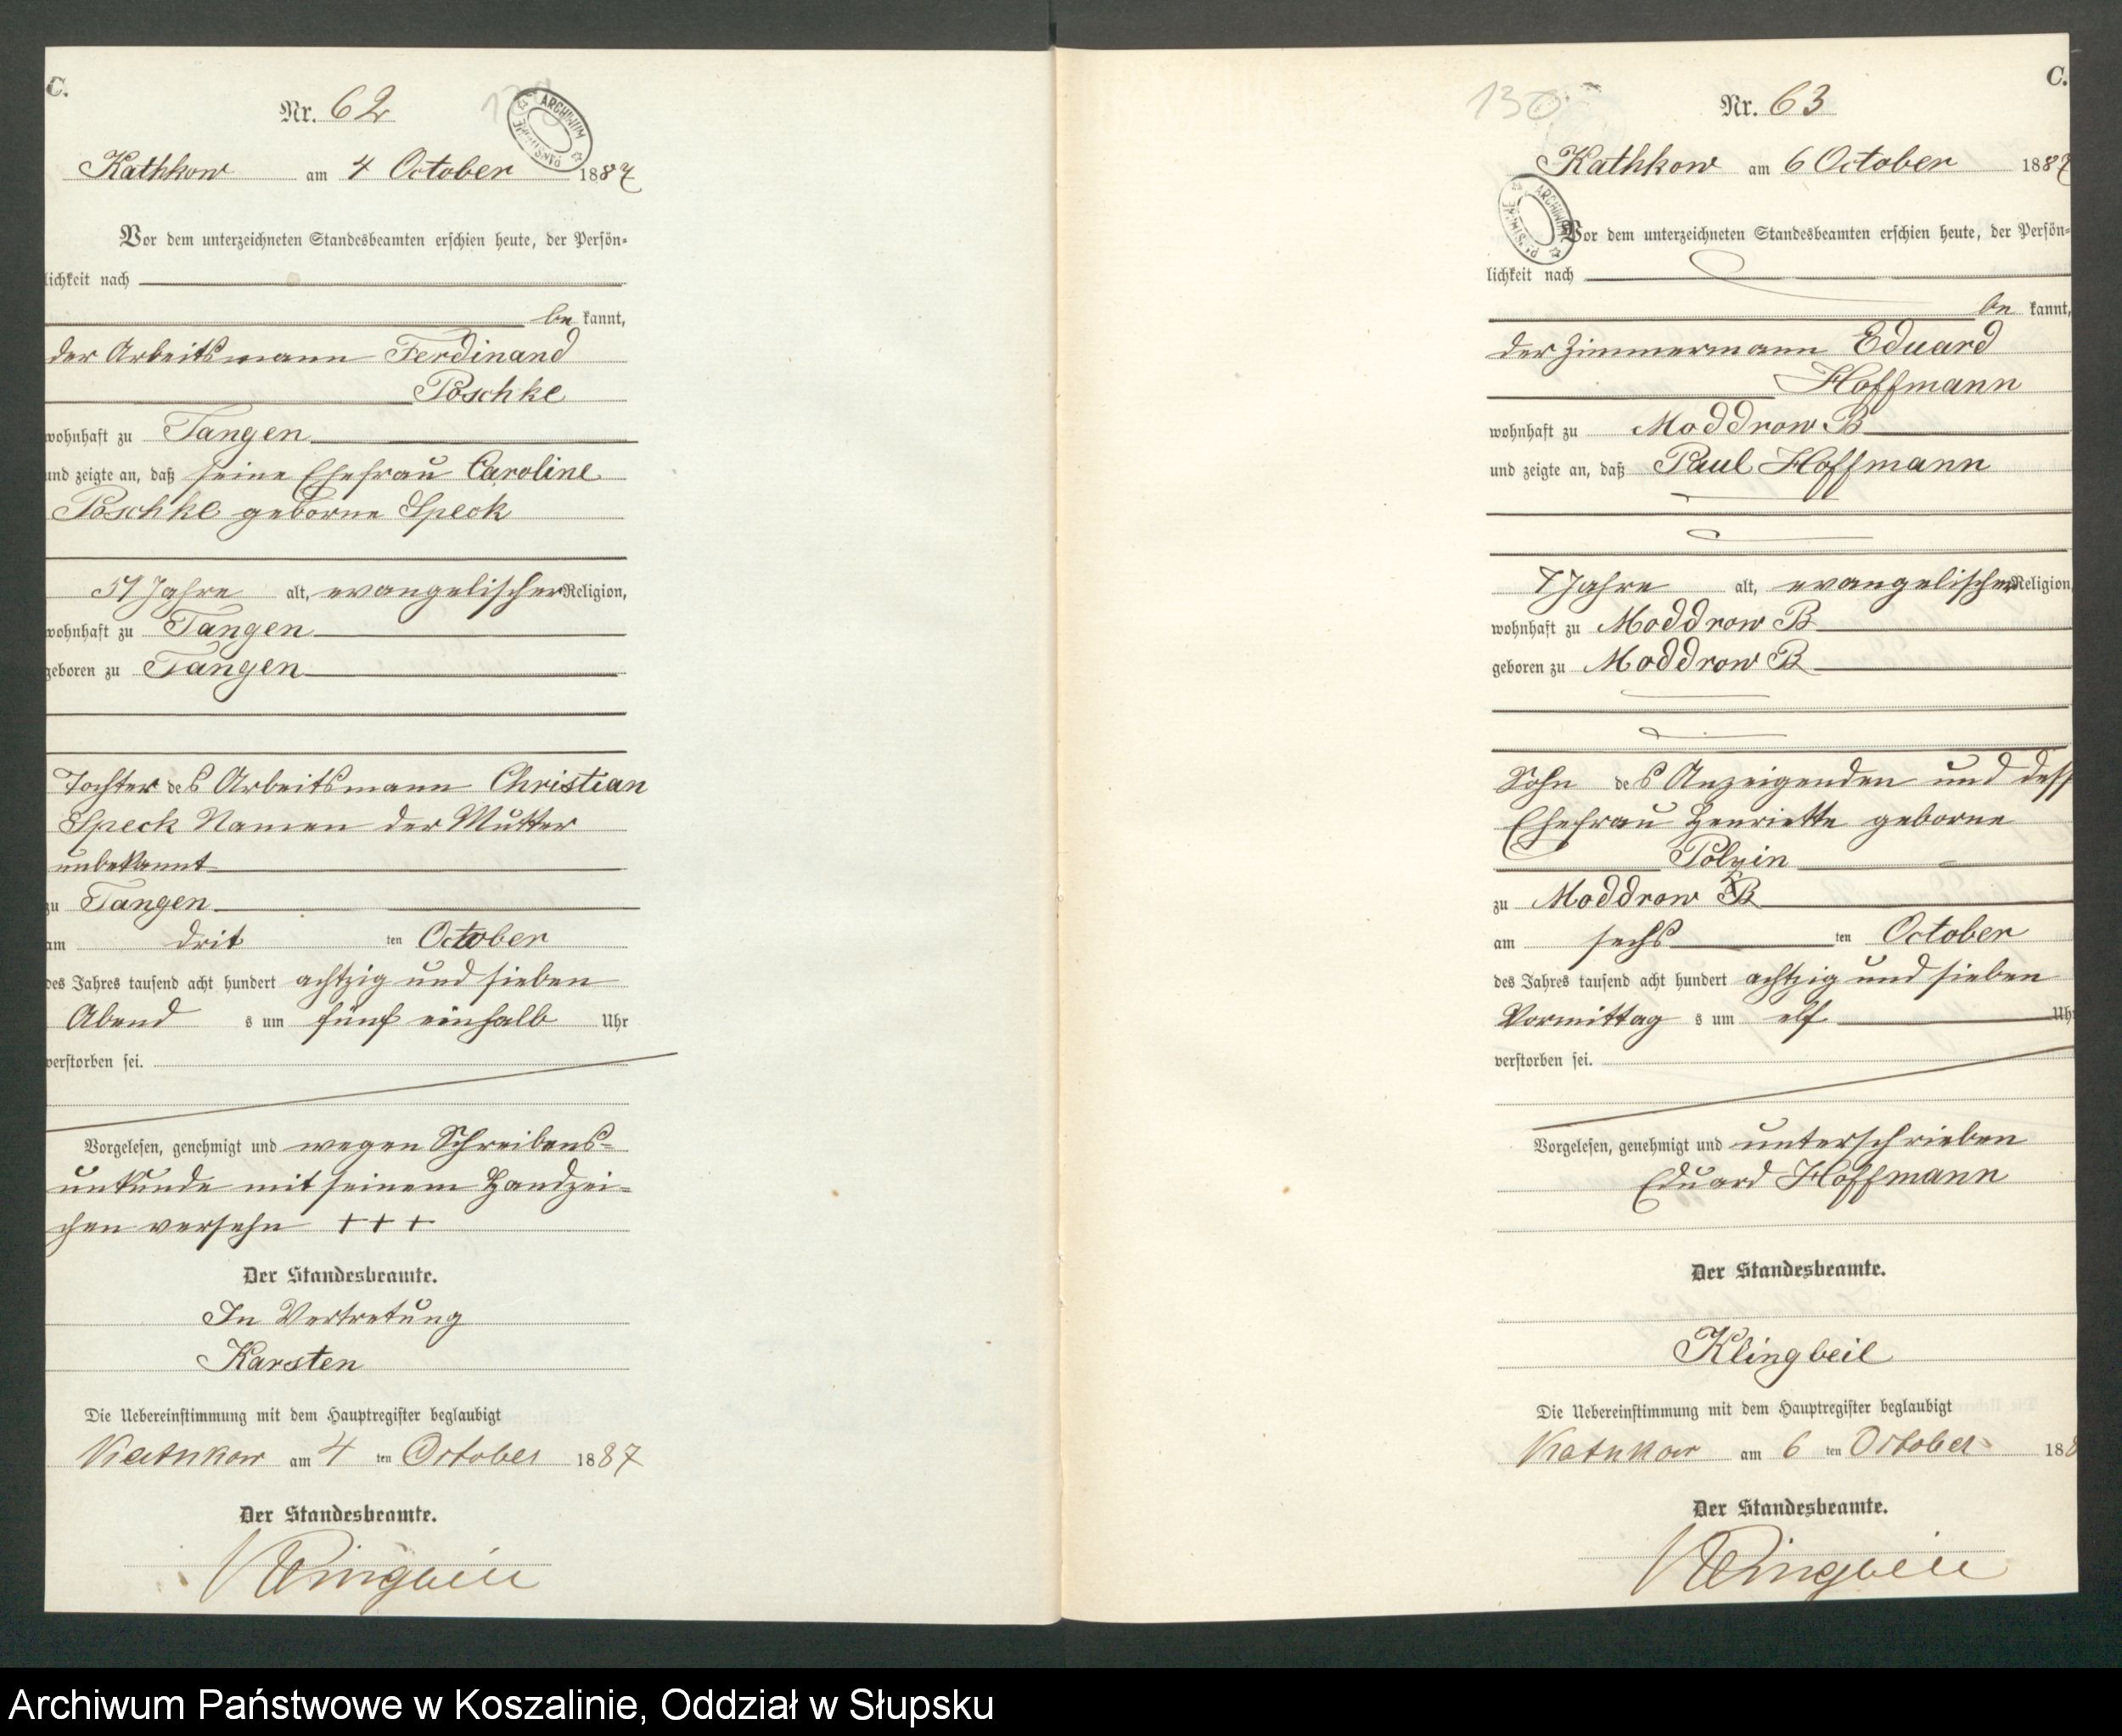 C.
Nr. 62
ARCHIWUM PAŃSTWOWE
Kathkow am 4 October 1887
Vor dem unterzeichneten Standesbeamten erschien heute, der Persön-
lichkeit nach
be kannt,
der Arbeitsmann Ferdinand
Poschke
wohnhaft zu Tangen
und zeigte an, daß seine Ehefrau Caroline
Poschke geborne Speck
51 Jahre alt, evangelischer Religion,
wohnhaft zu Tangen
geboren zu Tangen
Tochter des Arbeitsmann Christian
Speck Namen der Mutter
unbekannt
zu Tangen
am drit ten October
des Jahres tausend acht hundert achtzig und sieben
Abend s um fünf einhalb Uhr
verstorben sei.
Vorgelesen, genehmigt und wegen Schreibens-
unkunde mit seinem Handzei-
chen versehn +++
Der Standesbeamte.
In Vertretung
Karsten
Die Uebereinstimmung mit dem Hauptregister beglaubigt
Kathkow am 4 ten October 1887
Der Standesbeamte.
Klingbeil
C.
130
Nr. 63
Kathkow am 6 October 1887
Vor dem unterzeichneten Standesbeamten erschien heute, der Persön-
lichkeit nach
be kannt,
der Zimmermann Eduard
Hoffmann
wohnhaft zu Moddrow B
und zeigte an, daß Paul Hoffmann
7 Jahre alt, evangelischer Religion
wohnhaft zu Moddrow B
geboren zu Moddrow B
Sohn des Anzeigenden und dess
Ehefrau Henriette geborne
Polzin
zu Moddrow B
am sechs ten October
des Jahres tausend acht hundert achtzig und sieben
Vormittag s um elf Uhr
verstorben sei.
Vorgelesen, genehmigt und unterschrieben
Eduard Hoffmann
Der Standesbeamte.
Klingbeil
Die Uebereinstimmung mit dem Hauptregister beglaubigt
Kathkow am 6 ten October 188
Der Standesbeamte.
Klingbeil
Archiwum Państwowe w Koszalinie, Oddział w Słupsku